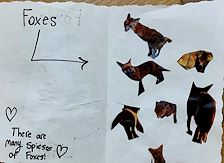 Foxes
There are
many Spieses
of Foxes!